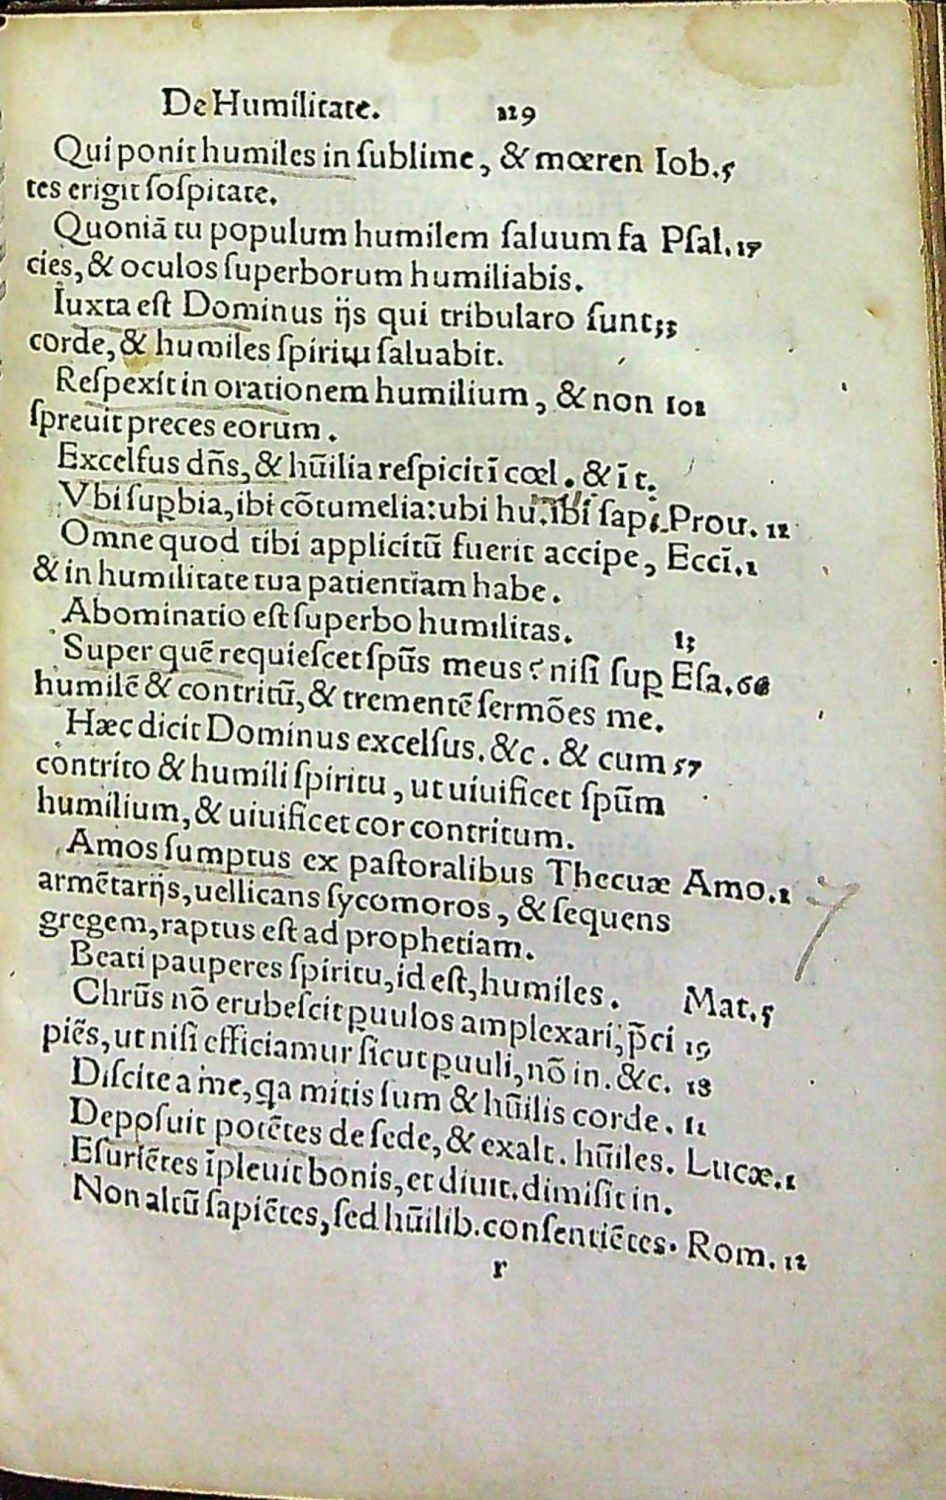 De Humilitate. 129
Qui ponit humiles in ſublime, & mœren Iob.5
tes erigit ſoſpitate.
Quoniā tu populum humilem ſaluum fa Pſal.17
cies, & oculos ſuperborum humiliabis.
Iuxta eſt Dominus ijs qui tribulato ſunt 33
corde, & humiles ſpiritu ſaluabit.
Reſpexit in orationem humilium, & non 101
ſpreuit preces eorum.
Excelſus dn̄s, & hūilia reſpicit ī cœl. & ī t.
Vbi ſuꝑbia, ibi cōtumelia: ubi hu. ibi ſapi. Prou. 11
Omne quod tibi applicitū fuerit accipe, Eccī.1
& in humilitate tua patientiam habe.
Abominatio eſt ſuperbo humilitas. 13
Super quē requieſcet ſpūs meus? niſi ſuꝑ Eſa.66
humilē & contritū, & trementē ſermōes me.
Hæc dicit Dominus excelſus. &c. & cum 57
contrito & humili ſpiritu, ut uiuificet ſpūm
humilium, & uiuificet cor contritum.
Amos ſumptus ex paſtoralibus Thecuæ Amo.1
armētarijs, uellicans ſycomoros, & ſequens 7
gregem, raptus eſt ad prophetiam.
Beati pauperes ſpiritu, id eſt, humiles. Mat.5
Chrūs nō erubeſcit ꝑuulos amplexari, p̄ci 19
piēs, ut niſi efficiamur ſicut ꝑuuli, nō in. &c. 18
Diſcite a me, qa mitis ſum & hūilis corde. 11
Deppſuit potētes de ſede, & exalt. hūiles. Lucæ.1
Eſuriētes īpleuit bonis, et diuit. dimiſit in.
Non altū ſapiētes, ſed hūilib. conſentiētes. Rom. 12
r